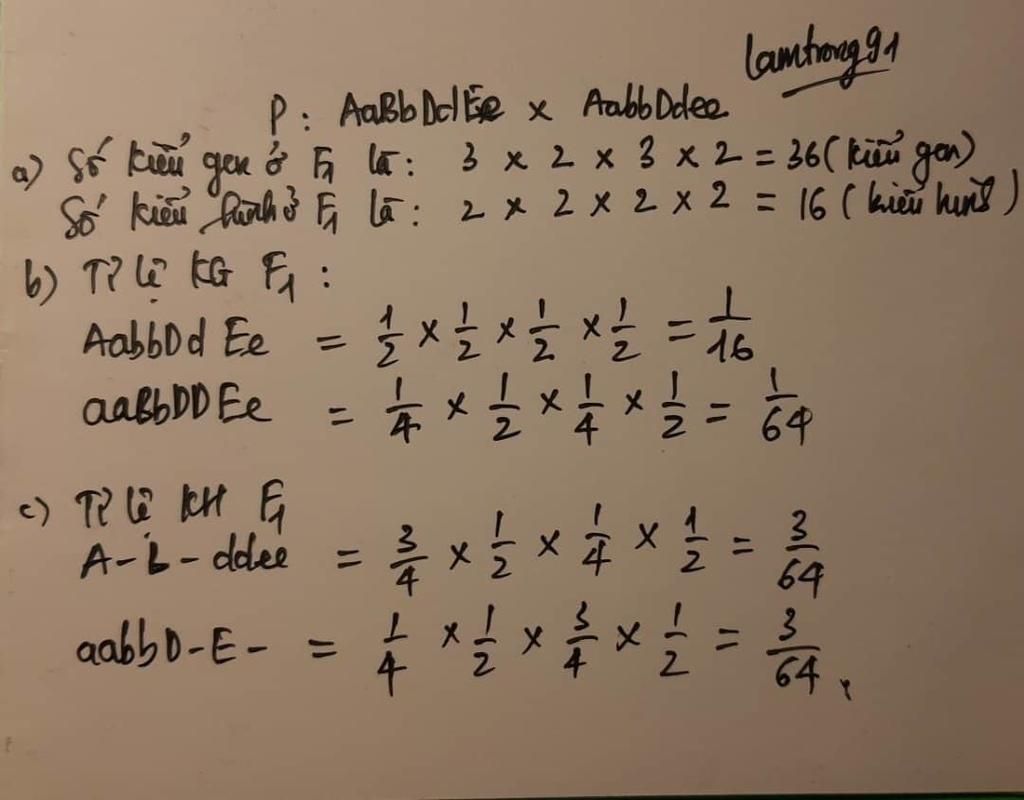 lamtrong91
P: AaBbDdEe x AabbDdee
a) Số kiểu gen ở F1 là: 3 x 2 x 3 x 2 = 36 (kiểu gen)
Số kiểu hình ở F1 là: 2 x 2 x 2 x 2 = 16 (kiểu hình)
b) Tỉ lệ KG F1:
AabbDdEe = 1/2 x 1/2 x 1/2 x 1/2 = 1/16
aaBbDDEe = 1/4 x 1/2 x 1/4 x 1/2 = 1/64
c) Tỉ lệ KH F1
A-b-ddee = 3/4 x 1/2 x 1/4 x 1/2 = 3/64
aabbD-E- = 1/4 x 1/2 x 3/4 x 1/2 = 3/64.